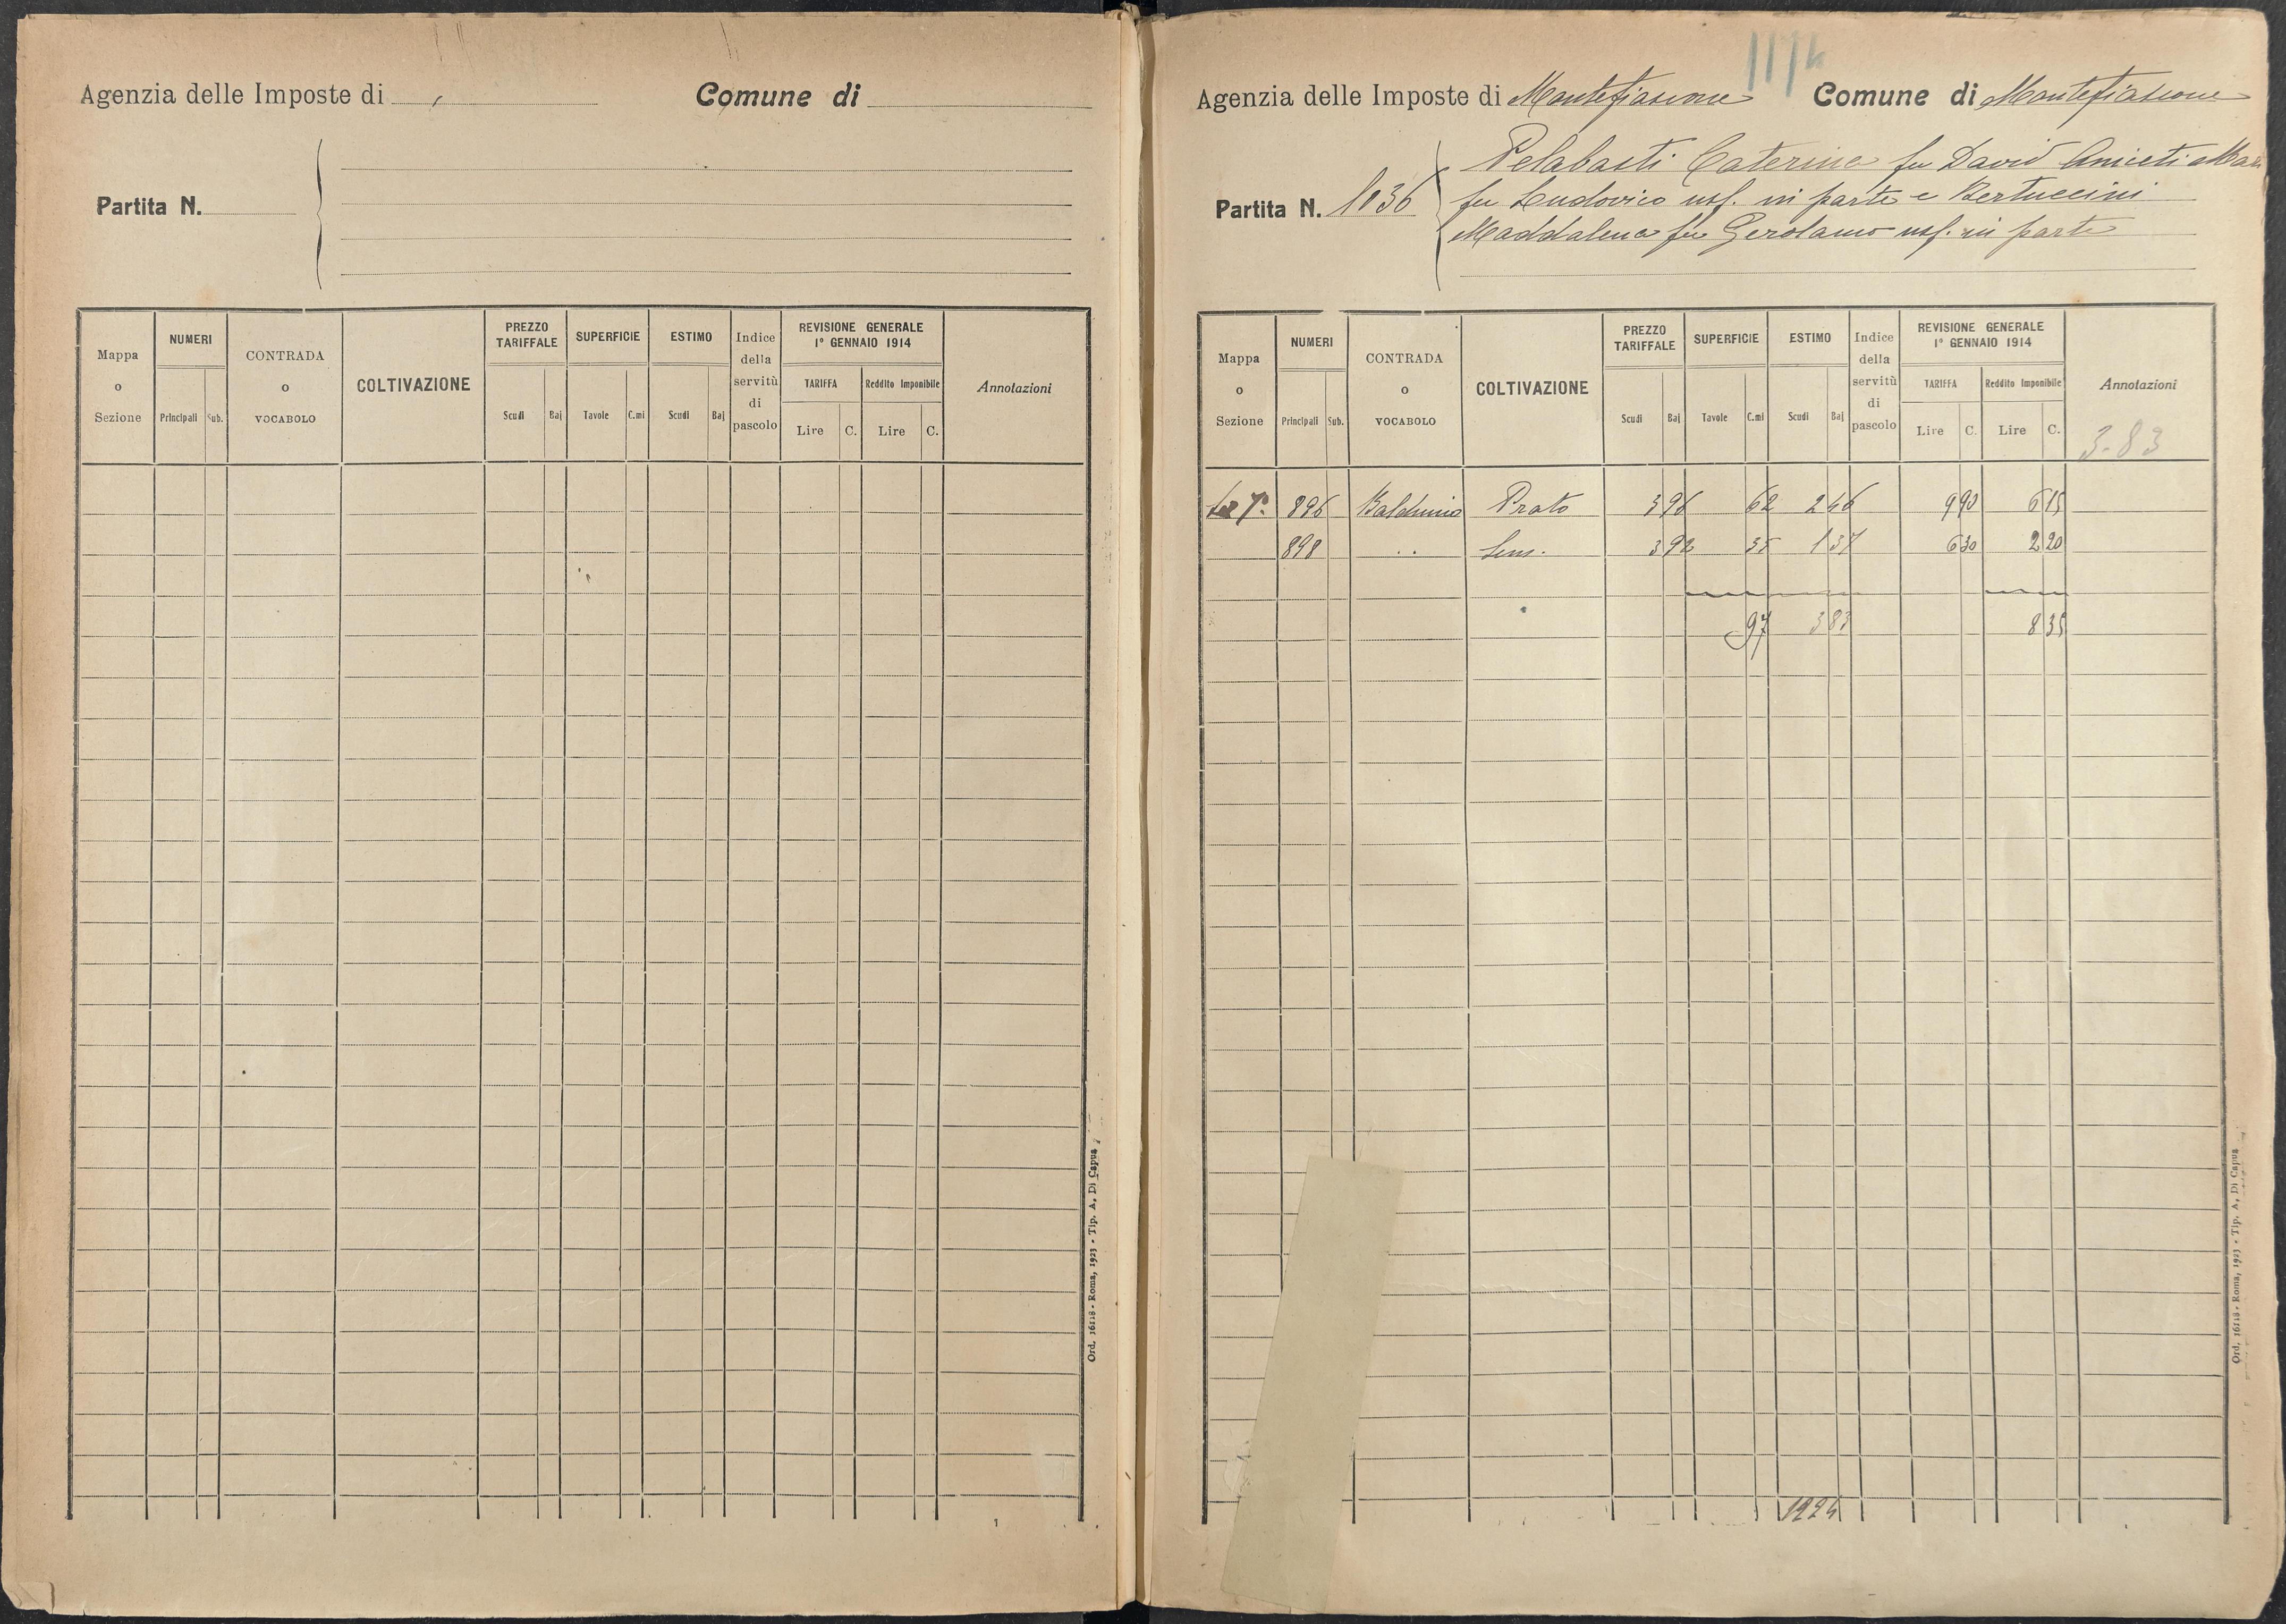 Agenzia delle Imposte di
Comune di
Partita N.
Mappa o Sezione
NUMERI
Principali
Sub.
CONTRADA o VOCABOLO
COLTIVAZIONE
PREZZO TARIFFALE
Scudi
Baj
SUPERFICIE
Tavole
C.mi
ESTIMO
Scudi
Baj
Indice della servitù di pascolo
REVISIONE GENERALE
1° GENNAIO 1914
TARIFFA
Reddito Imponibile
Lire
C.
Lire
C.
Annotazioni
Ord. 16118 - Roma, 1923 - Tip. A. Di Capua
1174
Agenzia delle Imposte di Montefiascone
Comune di Montefiascone
Partita N. 1036
Pelabasti Caterina fu David Aniceti
fu Ludovico usf. in parte e Bertuccini
Maddalena fu Gerolamo usf. in parte
Mappa o Sezione
NUMERI
Principali
Sub.
CONTRADA o VOCABOLO
COLTIVAZIONE
PREZZO TARIFFALE
Scudi
Baj
SUPERFICIE
Tavole
C.mi
ESTIMO
Scudi
Baj
Indice della servitù di pascolo
REVISIONE GENERALE
1° GENNAIO 1914
TARIFFA
Reddito Imponibile
Lire
C.
Lire
C.
Annotazioni
3-83
896 Prato 3 96 62 2 46 9 90 6 15
898 Sem. 3 92 35 1 37 6 30 2 20
97 3 83 8 35
1924
Ord. 16118 - Roma, 1923 - Tip. A. Di Capua